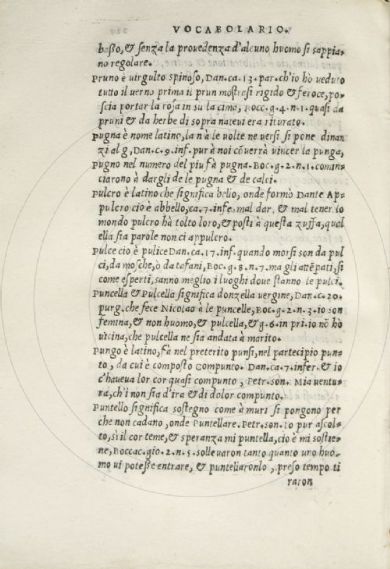 VOCABOLARIO.
basto, & senza la provedenza d'alcuno huomo si sappia-
no regolare.
Pruno è virgulto spinoso, Dan. ca. 13. par. ch'io hò veduto
tutto il verno prima il prun mostrasi rigido & feroce, po-
scia portar la rosa in su la cima, Bocc. g. 4. n. 1. quasi da
pruni & da herbe di sopra natevi era riturato.
Pugna è nome latino, la n à le volte ne versi si pone dinan
zi al g, Dan. c. 9. inf. pur à noi cōverrà vincer la punga,
Pugno nel numero del piu fà pugna. Boc. g. 2. n. 1. comin-
ciarono à dargli de le pugna & de calci.
Pulcro è latino che significa bello, onde formò Dante Ap-
pulcro cio è abbello, ca. 7. infe. mal dar, & mal tener lo
mondo pulcro hà tolto loro, & posti à questa zuffa, qual
ella sia parole non ci appulcro.
Pulce cio è pulice Dan. ca. 17. inf. quando morsi son da pul
ci, da mosche, ò da tefani, Boc. g. 8. n. 7. ma gli attēpati, si
come esperti, sanno meglio i luoghi dove stanno le pulci.
Puncella & Pulcella significa donzella vergine, Dan. c. 20.
purg. che fece Nicolao à le puncelle, Boc. g. 2. n. 3. io son
femina, & non huomo, & pulcella, & g. 6. in pri. io nō hò
vicina, che pulcella ne sia andata à marito.
Pungo è latino, fà nel preterito punsi, nel partecipio pun-
to, da cui è composto compunto. Dan. ca. 7. infer. & io
c'haveva lor cor quasi compunto, Petr. son. Mia ventu-
ra, ch'i non sia d'ira & di dolor compunto.
Puntello significa sostegno come à muri si pongono per
che non cadano, onde Puntellare. Petr. son. Io pur ascol-
to, sì il cor teme, & speranza mi puntella, cio è mi sostie-
ne, Boccac. gio. 2. n. 5. sollevaron tanto quanto uno huo-
mo vi potesse entrare, & puntellaronlo, preso tempo ti
raron